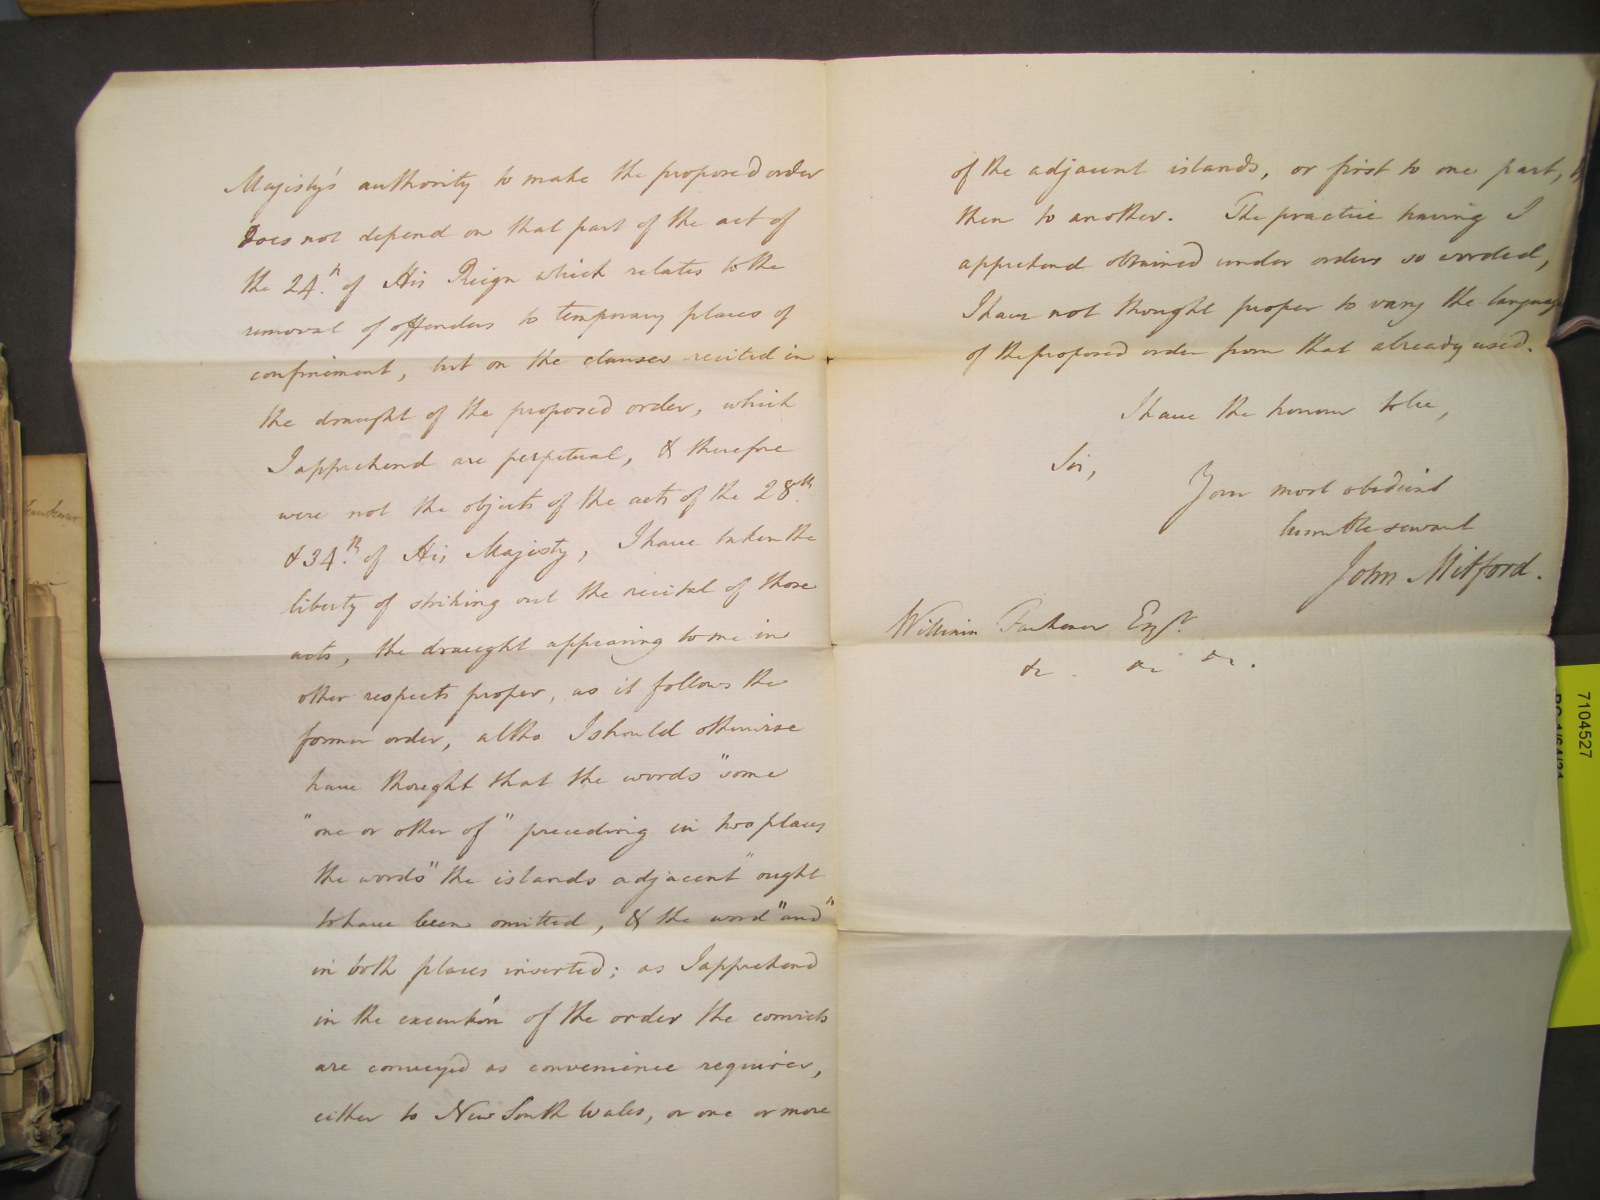 Majesty's authority to make the proposed order
does not depend on that part of the act of
the 24.th of His Reign which relates to the
removal of offenders to temporary places of
confinement, but on the clauses recited in
the draught of the proposed order, which
I apprehend are perpetual, & therefore
were not the objects of the acts of the 28.th
& 34.th of His Majesty, I have taken the
liberty of striking out the recital of those
acts, the draught appearing to me in
other respects proper, as it follows the
former order, altho I should otherwise
have thought that the words "some
"one or other of" preceding in two places
the words "the islands adjacent" ought
to have been omitted, & the word "and"
in both places inserted; as I apprehend
in the execution of the order the convicts
are conveyed as convenience requires,
either to New South Wales, or one or more
of the adjacent islands, or first to one part, &
then to another. The practice having I
apprehend obtained under orders so worded,
I have not thought proper to vary the language
of the proposed order from that already used.
I have the honour to be,
Sir,
Your most obedient
humble servant
John Mitford.
William Fawkener Esqr.
&c. &c &c.
7104527
PC 1/64/31
Fawkener